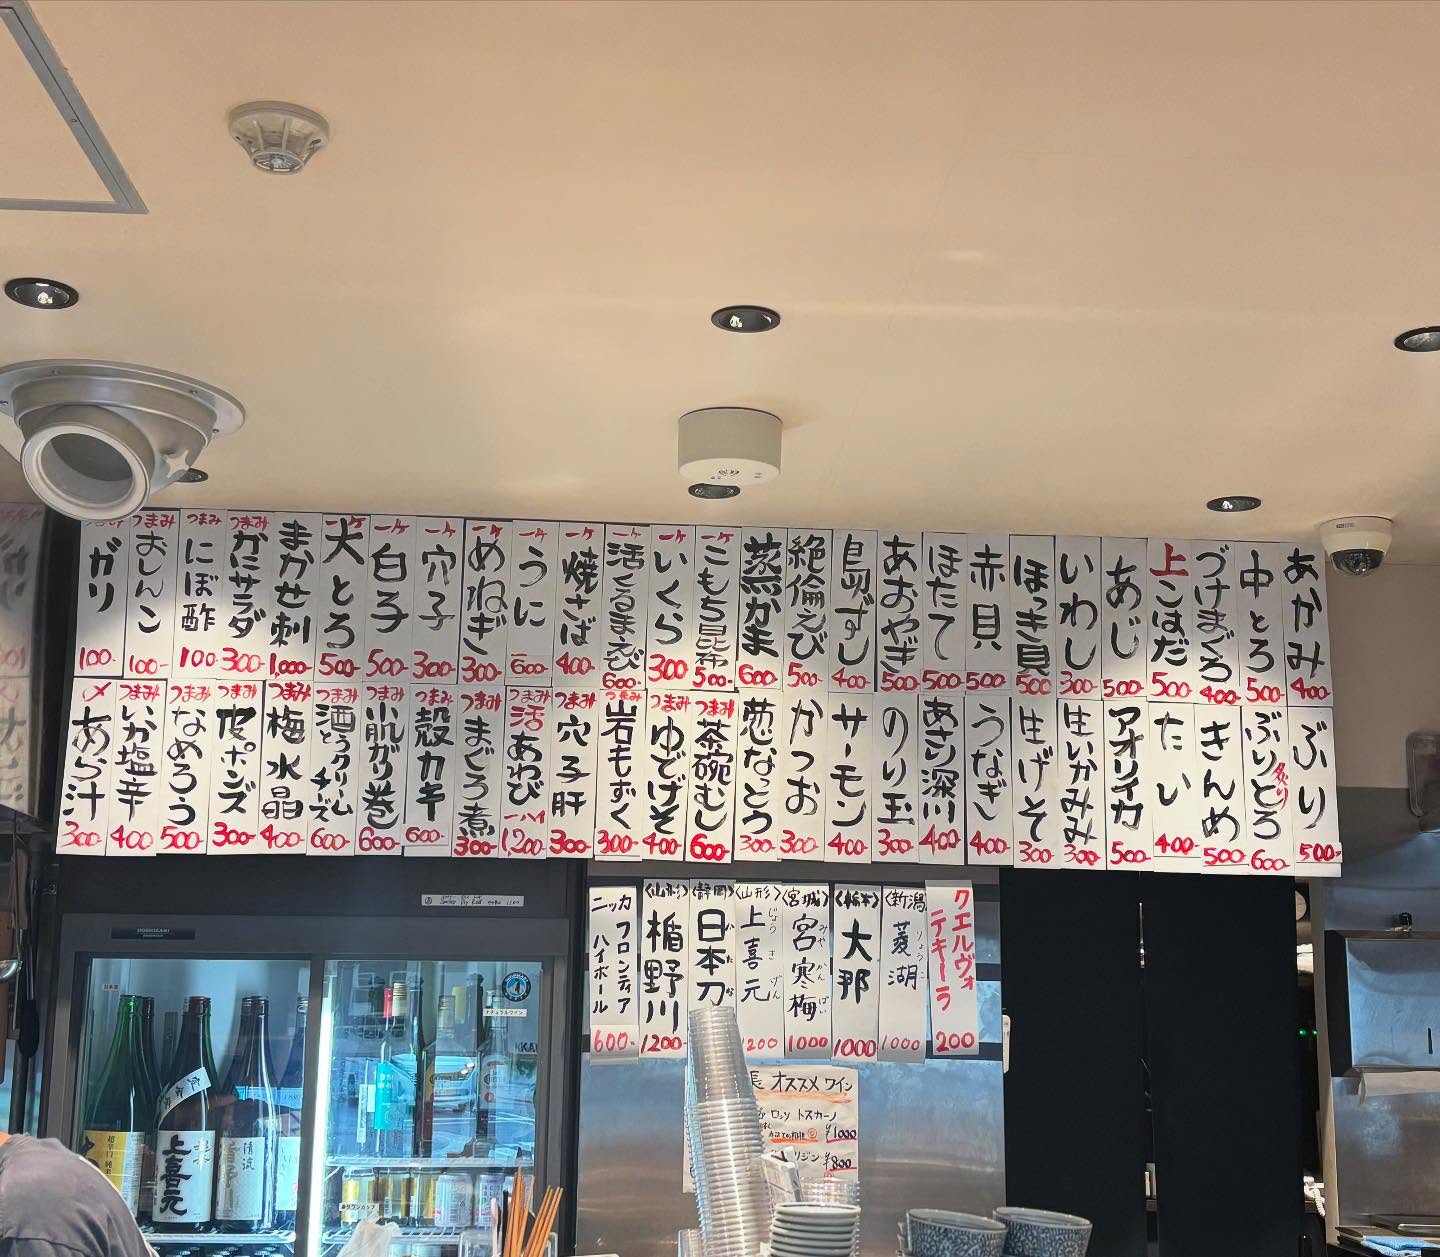 あかみ 400-
中とろ 500-
づけまぐろ 400-
上こはだ 500-
あじ 500-
いわし 300-
ほっき貝 500
赤貝 500
ほたて 500
あおやぎ 500
鳥貝ずし 400-
絶倫えび 500-
蒸しかま 600-
一ケ こもち昆布 500-
一ケ いくら 300
一ケ 活くるまえび 600-
一ケ 焼さば 400-
一ケ うに 600
一ケ めねぎ 300-
一ケ 穴子 300-
一ケ 白子 500-
一ケ 大とろ 500-
まかせ刺 1,000-
つまみ かにサラダ 300-
つまみ にぼ酢 100-
つまみ おしんこ 100-
ガリ 100-
ぶり 500-
ぶりとろ 炙り 600
きんめ 500
たい 400-
アオリイカ 500
生いかみみ 300
生げそ 300
うなぎ 400-
あさり深川 400
のり玉 300
サーモン 400-
かつお 300
葱なっとう 300
つまみ 茶碗むし 600
つまみ ゆでげそ 400-
つまみ 岩もずく 300-
つまみ 穴子肝 300-
つまみ 活あわび 一ハイ 1,200-
つまみ まぐろ煮 300-
つまみ 殻カキ 600-
つまみ 小肌ガリ巻 600
つまみ 酒とうクリームチーズ 600
つまみ 梅水晶 400
つまみ 皮ポンズ 300-
つまみ なめろう 500
つまみ いか塩辛 400
〆 あら汁 300
クエルヴォ テキーラ 200
〈新潟〉 菱湖 りょうこ 1000
〈栃木〉 大那 1000
〈宮城〉 宮寒梅 みやかんばい 1000
〈山形〉 上喜元 じょうきげん 1200
〈静岡〉 日本刀 かたな
〈山形〉 楯野川 1200-
ニッカ フロンティア ハイボール 600-
オススメ ワイン
ロッソ トスカーノ
¥1000
¥800
HOSHIZAKI
ナチュラルワイン
日本酒
上喜元